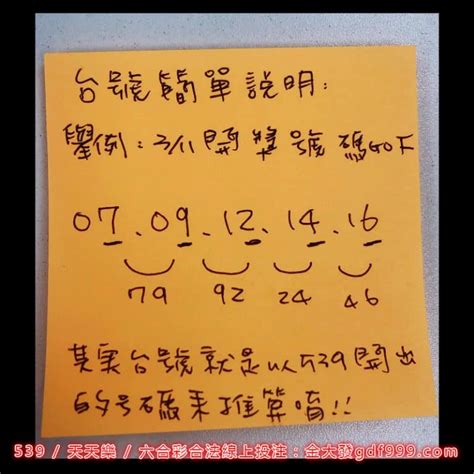 台號簡單說明:
舉例:3/11開獎號碼如下
07.09.12.14.16
79 92 24 46
其实台號就是以539開出
的号碼來推算唷!!
539 / 天天樂 / 六合彩合法線上投注：金大發gdf999.com